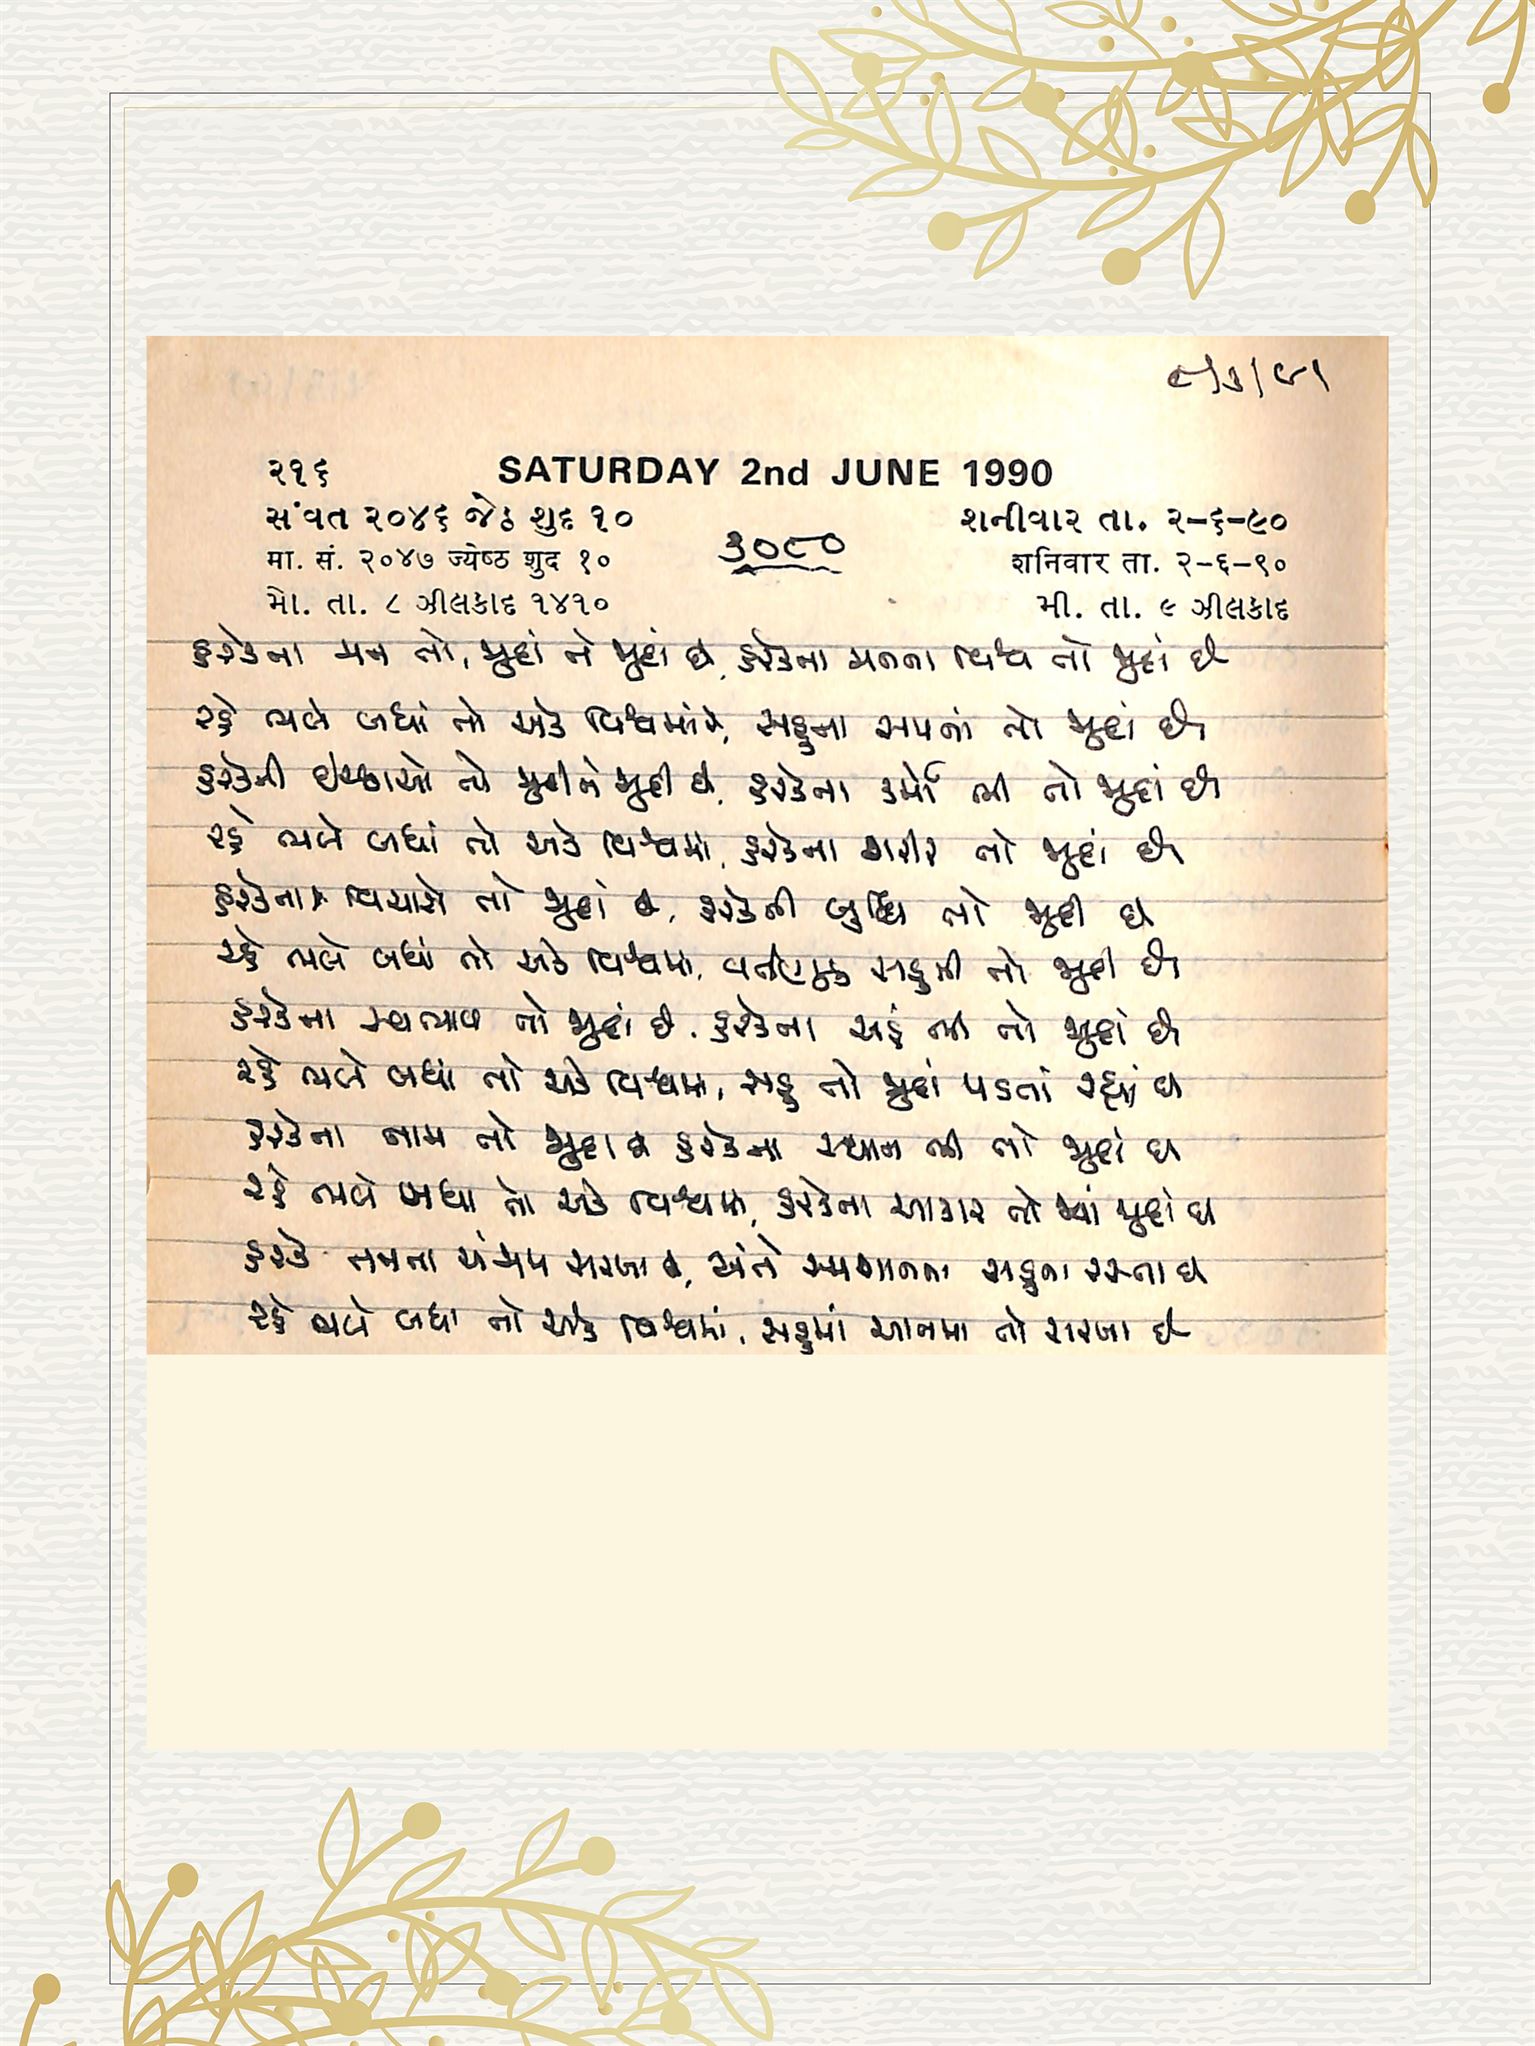 ૮/૩/૯૧
૨૧૬ SATURDAY 2nd JUNE 1990
સંવત ૨૦૪૬ જેઠ શુદ ૧૦ શનીવાર તા. ૨-૬-૯૦
૩૦૮૦
मा. सं. २०४७ ज्येष्ठ शुद १० शनिवार ता. २-६-९०
મો. તા. ૮ ઝીલકાદ ૧૪૧૦ મી. તા. ૯ ઝીલકાદ
હરેકના મન તો, જુદાં ને જુદાં છે, હરેકના મનના વિશ્વ તો જુદાં છે
રહે ભલે બધાં તો એક વિશ્વમાંરે, સહુના સપનાં તો જુદાં છે
હરેકની ઇચ્છાઓ તો જુદીને જુદી છે, હરેકના કર્મો ભી તો જુદાં છે
રહે ભલે બધાં તો એક વિશ્વમાં, હરેકના શરીર તો જુદાં છે
હરેકના વિચારો તો જુદાં છે, હરેકની બુદ્ધિ તો જુદી છે
રહે ભલે બધાં તો એક વિશ્વમાં, વર્તણૂક સહુની તો જુદી છે
હરેકના સ્વભાવ તો જુદાં છે, હરેકના અહં ભી તો જુદાં છે
રહે ભલે બધાં તો એક વિશ્વમાં, સહુ તો જુદાં પડતાં રહ્યાં છે
હરેકના નામ તો જુદા છે હરેકના સ્થાન ભી તો જુદાં છે
રહે ભલે બધા તો એક વિશ્વમાં, હરેકના આકાર તો જ્યાં જુદાં છે
હરેક તનના પંચમ સરખા છે, અંતે સ્મશાનના સહુના રસ્તા છે
રહે ભલે બધા તો એક વિશ્વમાં, સહુમાં આતમા તો સરખા છે